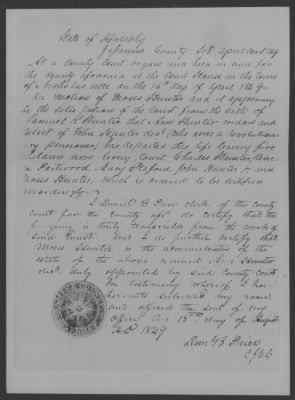 State of Kentucky
Jessamine County Sct April Court 1849
At a County Court began and held in and for
the County aforesaid at the Court House in the town
of Nicholasville on the 16th day of April 1849
On motion of Moses Hunter and it appearing
to the satisfaction of the Court from the oath of
Samuel R Hunter that Ann Hunter widow and
relict of John Hunter decd (who was a revolution
ary pensioner) has departed this life leaving five
children now living, to wit Charles Hunter,
a Portwood Mary Stafford John Hunter &
Moses Hunter, which is ordered to be certified
accordingly
I Daniel B Price clerk of the county
court for the county afsd do certify that the
is truly transcribed from the records of
said Court. And I do further certify that
Moses Hunter is the administrator of the
estate of the above named Ann Hunter
decd duly appointed by said County Court
In testimony whereof I have
hereunto subscribed my name
and affixed the seal of my
office this 13th day of August
AD 1849
Danl B Price
CJCC